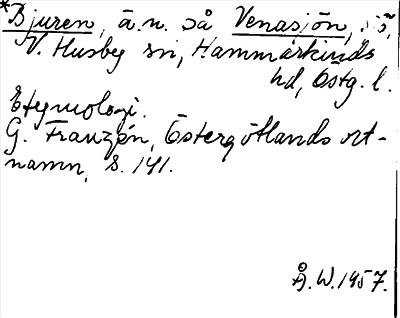 *Bjuren, ä.n. så Venasjön, sjö,
V. Husby sn, Hammarkinds
hd, Östg. l.
Etymologi.
G. Franzén, Östergötlands ort-
namn, s. 141.
Å.W. 1957.